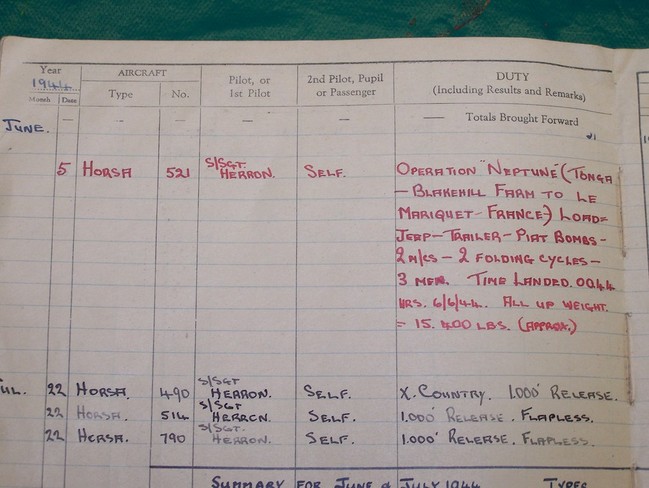 Year
1944
AIRCRAFT
Pilot, or
1st Pilot
2nd Pilot, Pupil
or Passenger
DUTY
(Including Results and Remarks)
Month Date
Type
No.
— — — — — — Totals Brought Forward
JUNE.
5 HORSA 521 S/SGT. HERRON. SELF. OPERATION "NEPTUNE" (TONGA
— BLAKEHILL FARM TO LE
MARIQUET - FRANCE-) LOAD=
JEEP—TRAILER—PIAT BOMBS—
2 M/CS — 2 FOLDING CYCLES—
3 MEN. TIME LANDED. 0044
HRS. 6/6/44. ALL UP WEIGHT.
= 15.400 LBS. (APPROX.)
JUL. 22 HORSA. 490 S/SGT HERRON. SELF. X. COUNTRY. 1.000' RELEASE.
22 HORSA. 514 S/SGT HERRON. SELF. 1.000' RELEASE. FLAPLESS.
22 HORSA. 790 S/SGT. HERRON. SELF. 1.000' RELEASE. FLAPLESS.
SUMMARY FOR JUNE & JULY 1944 TYPES